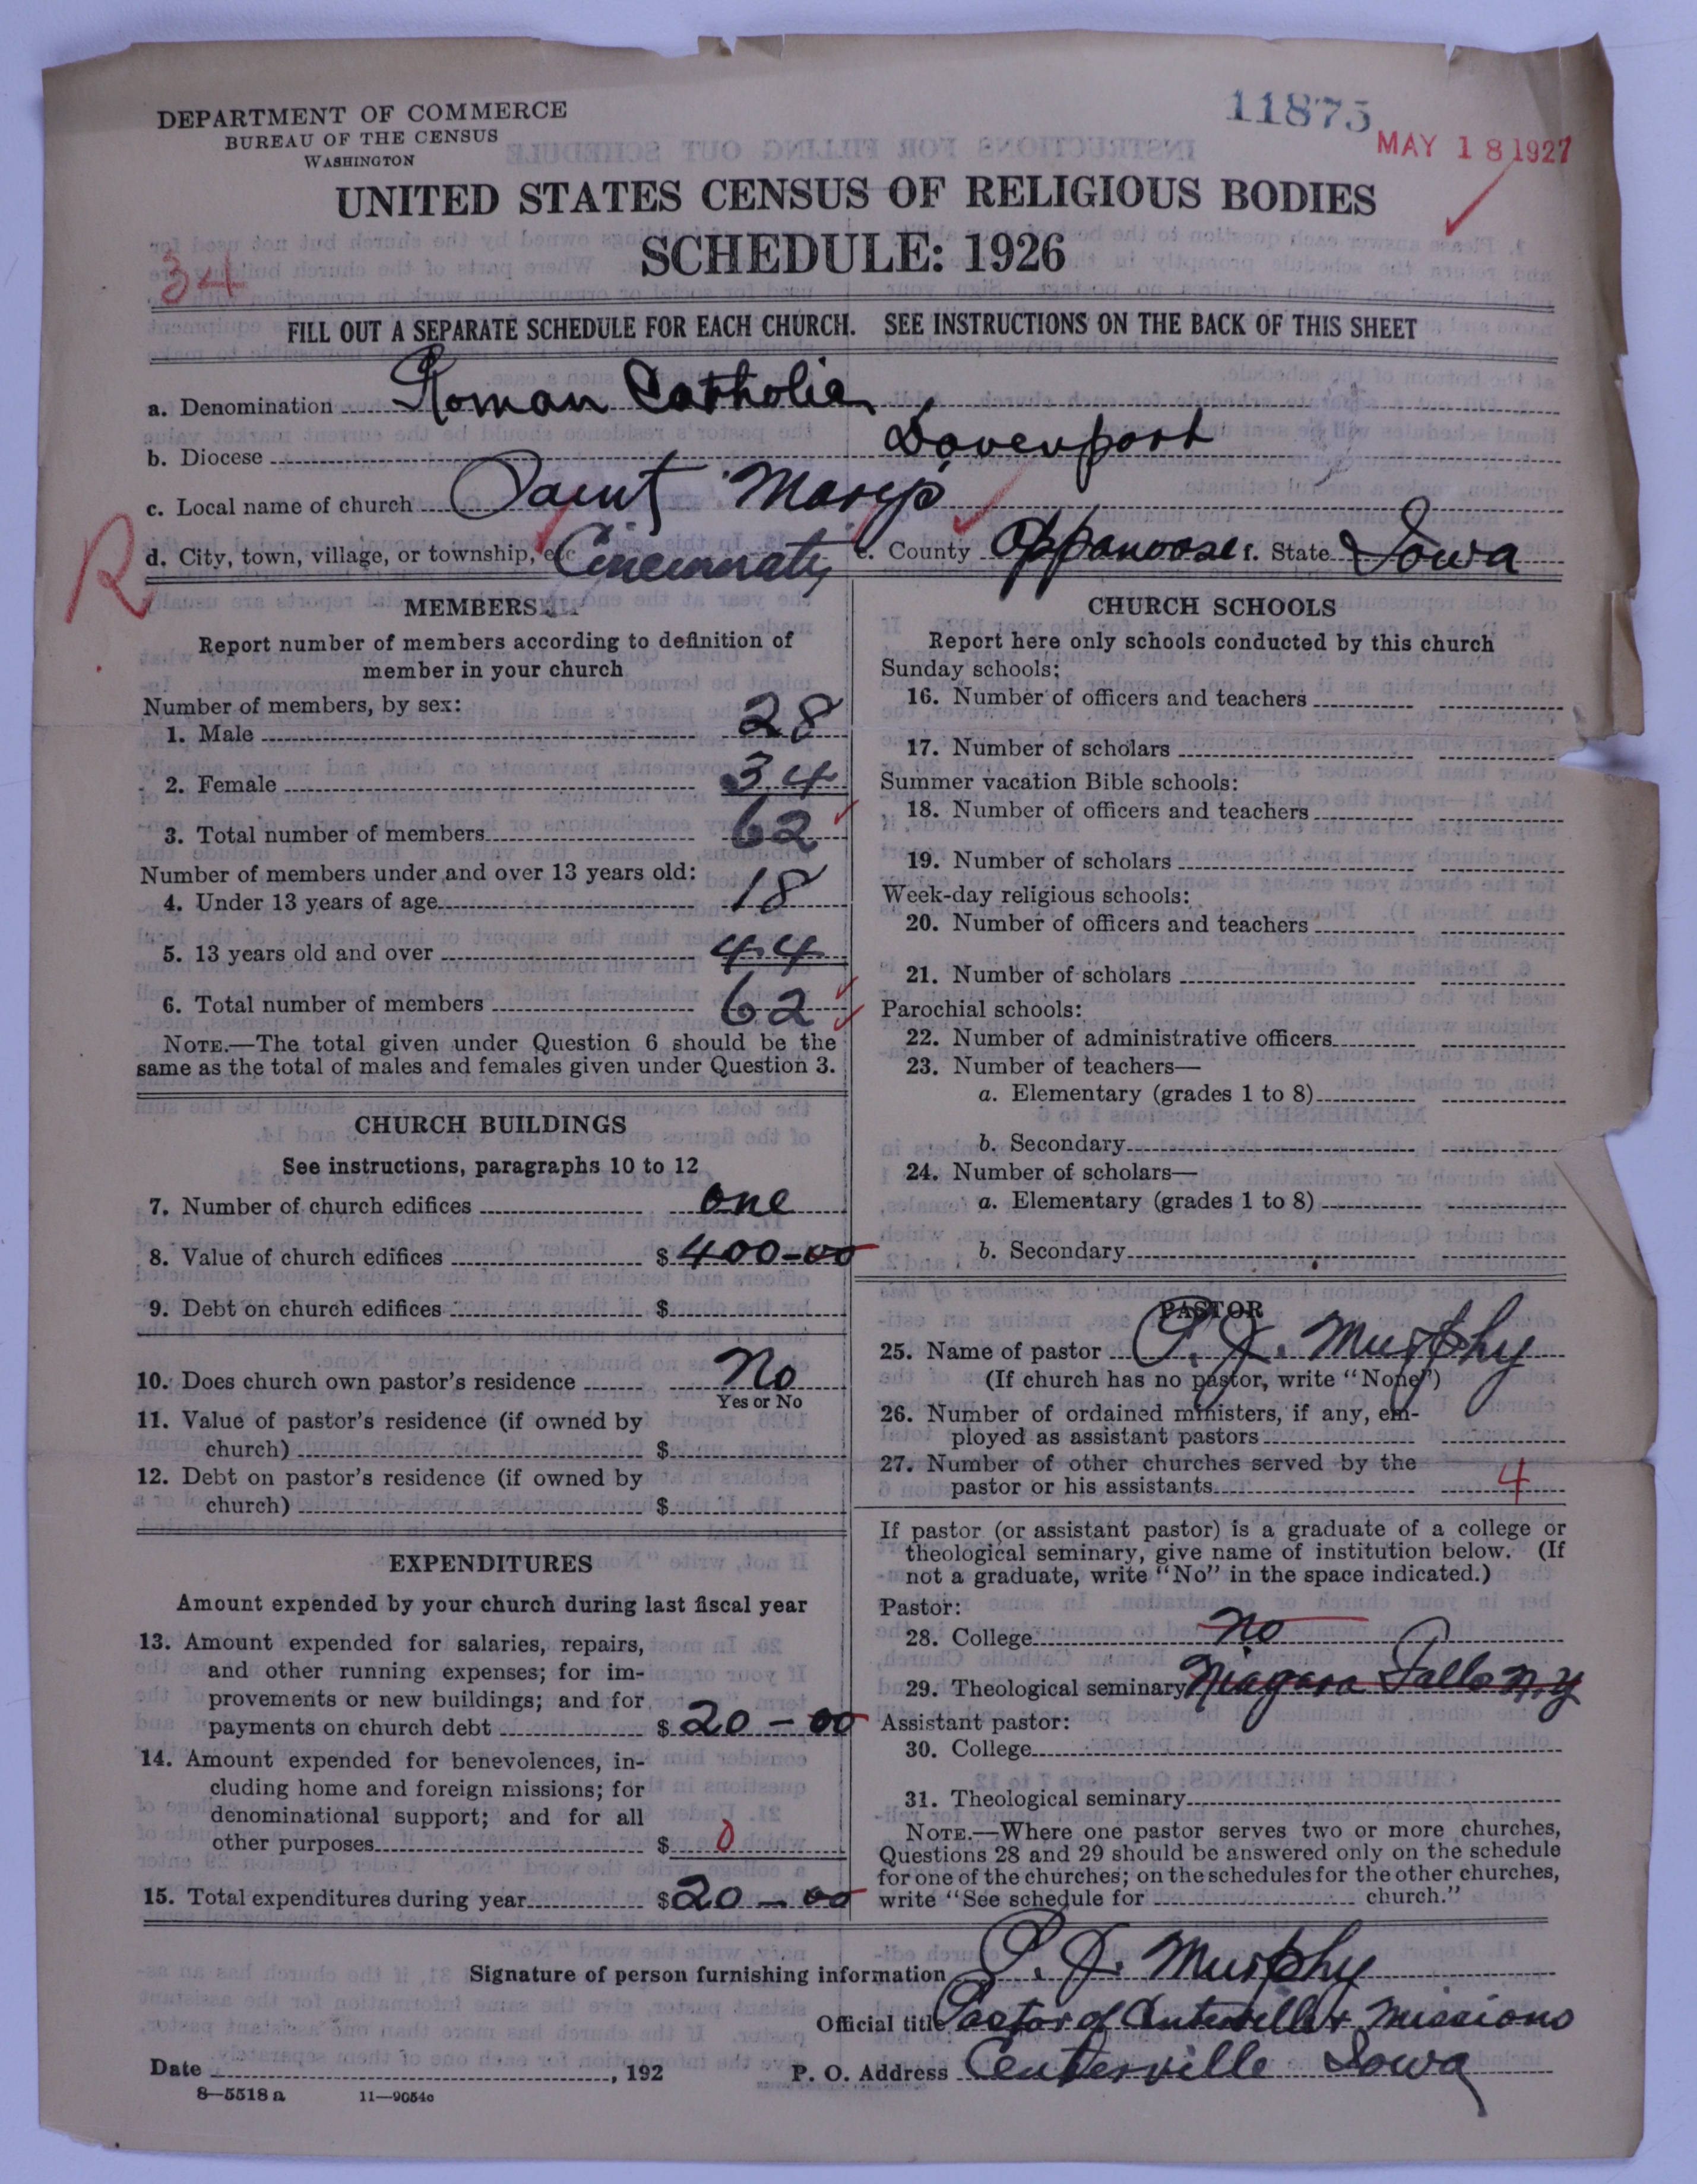 DEPARTMENT OF COMMERCE
BUREAU OF THE CENSUS
WASHINGTON
11875
MAY 18 1927
UNITED STATES CENSUS OF RELIGIOUS BODIES
SCHEDULE: 1926
34
FILL OUT A SEPARATE SCHEDULE FOR EACH CHURCH. SEE INSTRUCTIONS ON THE BACK OF THIS SHEET
a. Denomination Roman Catholic
b. Diocese Davenport
c. Local name of church Saint Marys
R
d. City, town, village, or township, etc Cincinnati e. County Appanoose f. State Iowa
MEMBERS
Report number of members according to definition of
member in your church
Number of members, by sex:
1. Male 28
2. Female 34
3. Total number of members 62
Number of members under and over 13 years old:
4. Under 13 years of age 18
5. 13 years old and over 44
6. Total number of members 62
NOTE.—The total given under Question 6 should be the
same as the total of males and females given under Question 3.
CHURCH BUILDINGS
See instructions, paragraphs 10 to 12
7. Number of church edifices one
8. Value of church edifices $ 400-00
9. Debt on church edifices $
10. Does church own pastor's residence No
Yes or No
11. Value of pastor's residence (if owned by
church) $
12. Debt on pastor's residence (if owned by
church) $
EXPENDITURES
Amount expended by your church during last fiscal year
13. Amount expended for salaries, repairs,
and other running expenses; for im-
provements or new buildings; and for
payments on church debt $ 20-00
14. Amount expended for benevolences, in-
cluding home and foreign missions; for
denominational support; and for all
other purposes $ 0
15. Total expenditures during year $ 20-00
CHURCH SCHOOLS
Report here only schools conducted by this church
Sunday schools:
16. Number of officers and teachers
17. Number of scholars
Summer vacation Bible schools:
18. Number of officers and teachers
19. Number of scholars
Week-day religious schools:
20. Number of officers and teachers
21. Number of scholars
Parochial schools:
22. Number of administrative officers
23. Number of teachers—
a. Elementary (grades 1 to 8)
b. Secondary
24. Number of scholars—
a. Elementary (grades 1 to 8)
b. Secondary
PASTOR
25. Name of pastor P. J. Murphy
(If church has no pastor, write "None")
26. Number of ordained ministers, if any, em-
ployed as assistant pastors
27. Number of other churches served by the
pastor or his assistants 4
If pastor (or assistant pastor) is a graduate of a college or
theological seminary, give name of institution below. (If
not a graduate, write "No" in the space indicated.)
Pastor:
28. College no
29. Theological seminary Niagara Falls N.Y
Assistant pastor:
30. College
31. Theological seminary
NOTE.—Where one pastor serves two or more churches,
Questions 28 and 29 should be answered only on the schedule
for one of the churches; on the schedules for the other churches,
write "See schedule for church."
Signature of person furnishing information P. J. Murphy
Official title Pastor of Centerville & missions
Date , 192
P. O. Address Centerville Iowa
8—5518 a 11—9054c